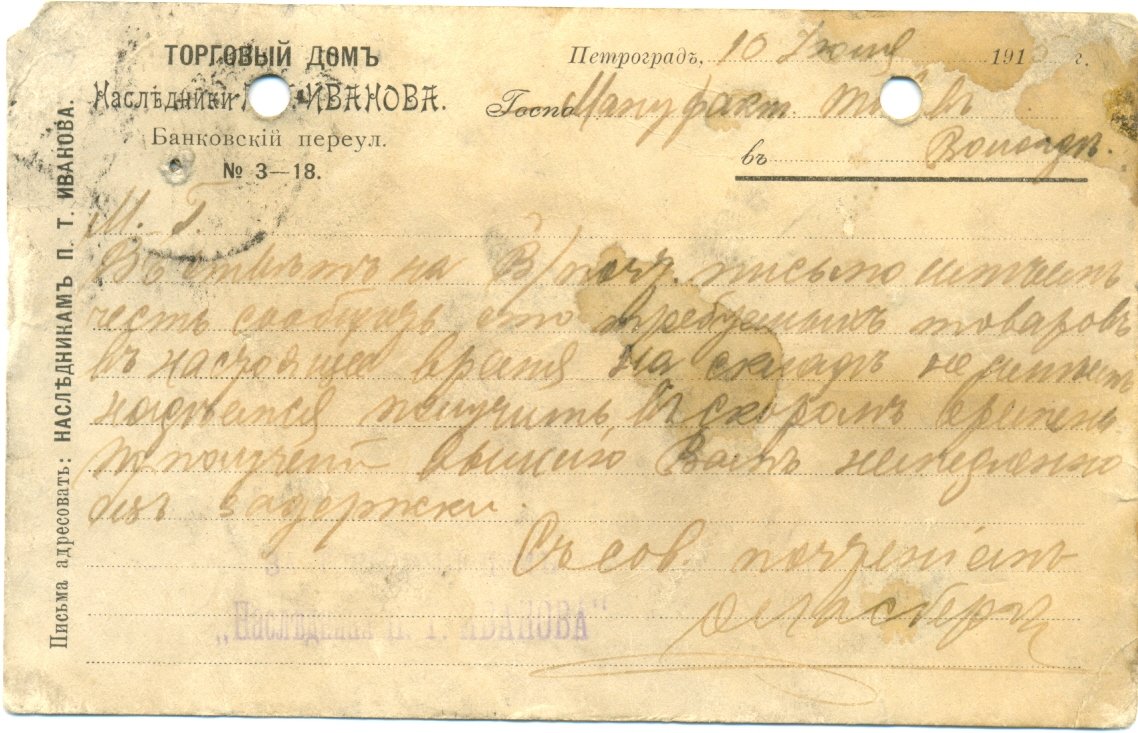 ТОРГОВЫЙ ДОМЪ
Наслѣдники ИВАНОВА.
Банковскій переул.
№ 3—18.
Письма адресовать: НАСЛѢДНИКАМЪ П. Т. ИВАНОВА.
Петроградъ, 10 Іюля 191 г.
Госпо Мануфакт.
въ Вологдѣ.
М. Г.
Въ отвѣтъ на В/поч. письмо имѣемъ
честь сообщить, что требуемыхъ товаровъ
въ настоящее время на складѣ не имѣемъ
надѣемся получить въ скоромъ времени
по полученіи вышлю Вамъ немедленно
безъ задержки.
Съ сов. почтеніемъ
„Наслѣдники П. Т. ИВАНОВА"